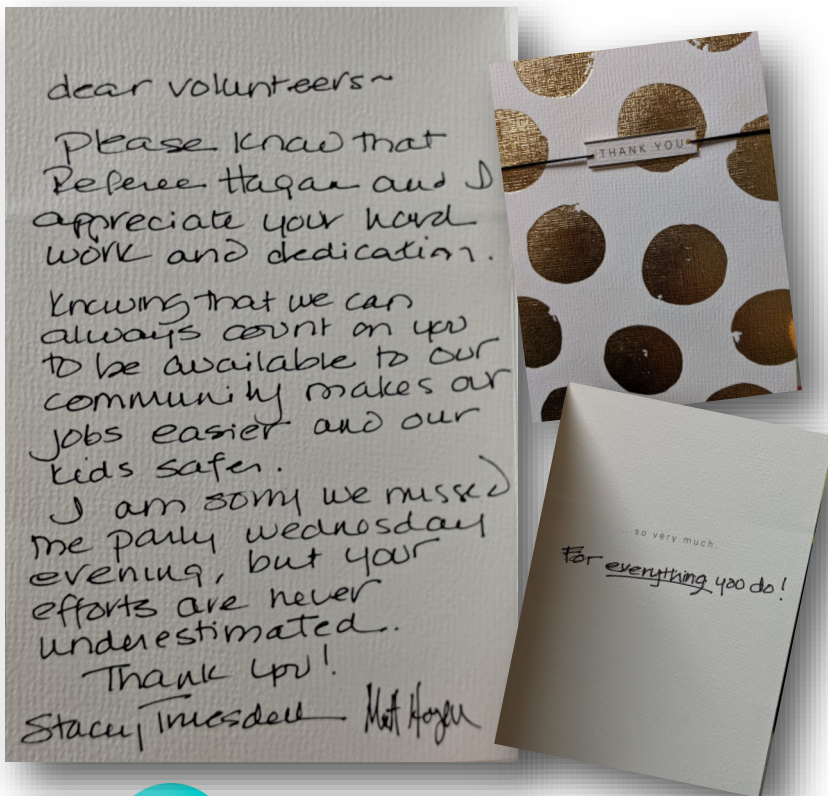 dear volunteers~
Please know that
Referee Hagan and I
appreciate your hard
work and dedication.
Knowing that we can
always count on you
to be available to our
community makes our
jobs easier and our
kids safer.
I am sorry we missed
the party wednesday
evening, but your
efforts are never
underestimated.
Thank you!
Stacey Truesdell Matt Hagen
THANK YOU
...so very much.
For everything you do!